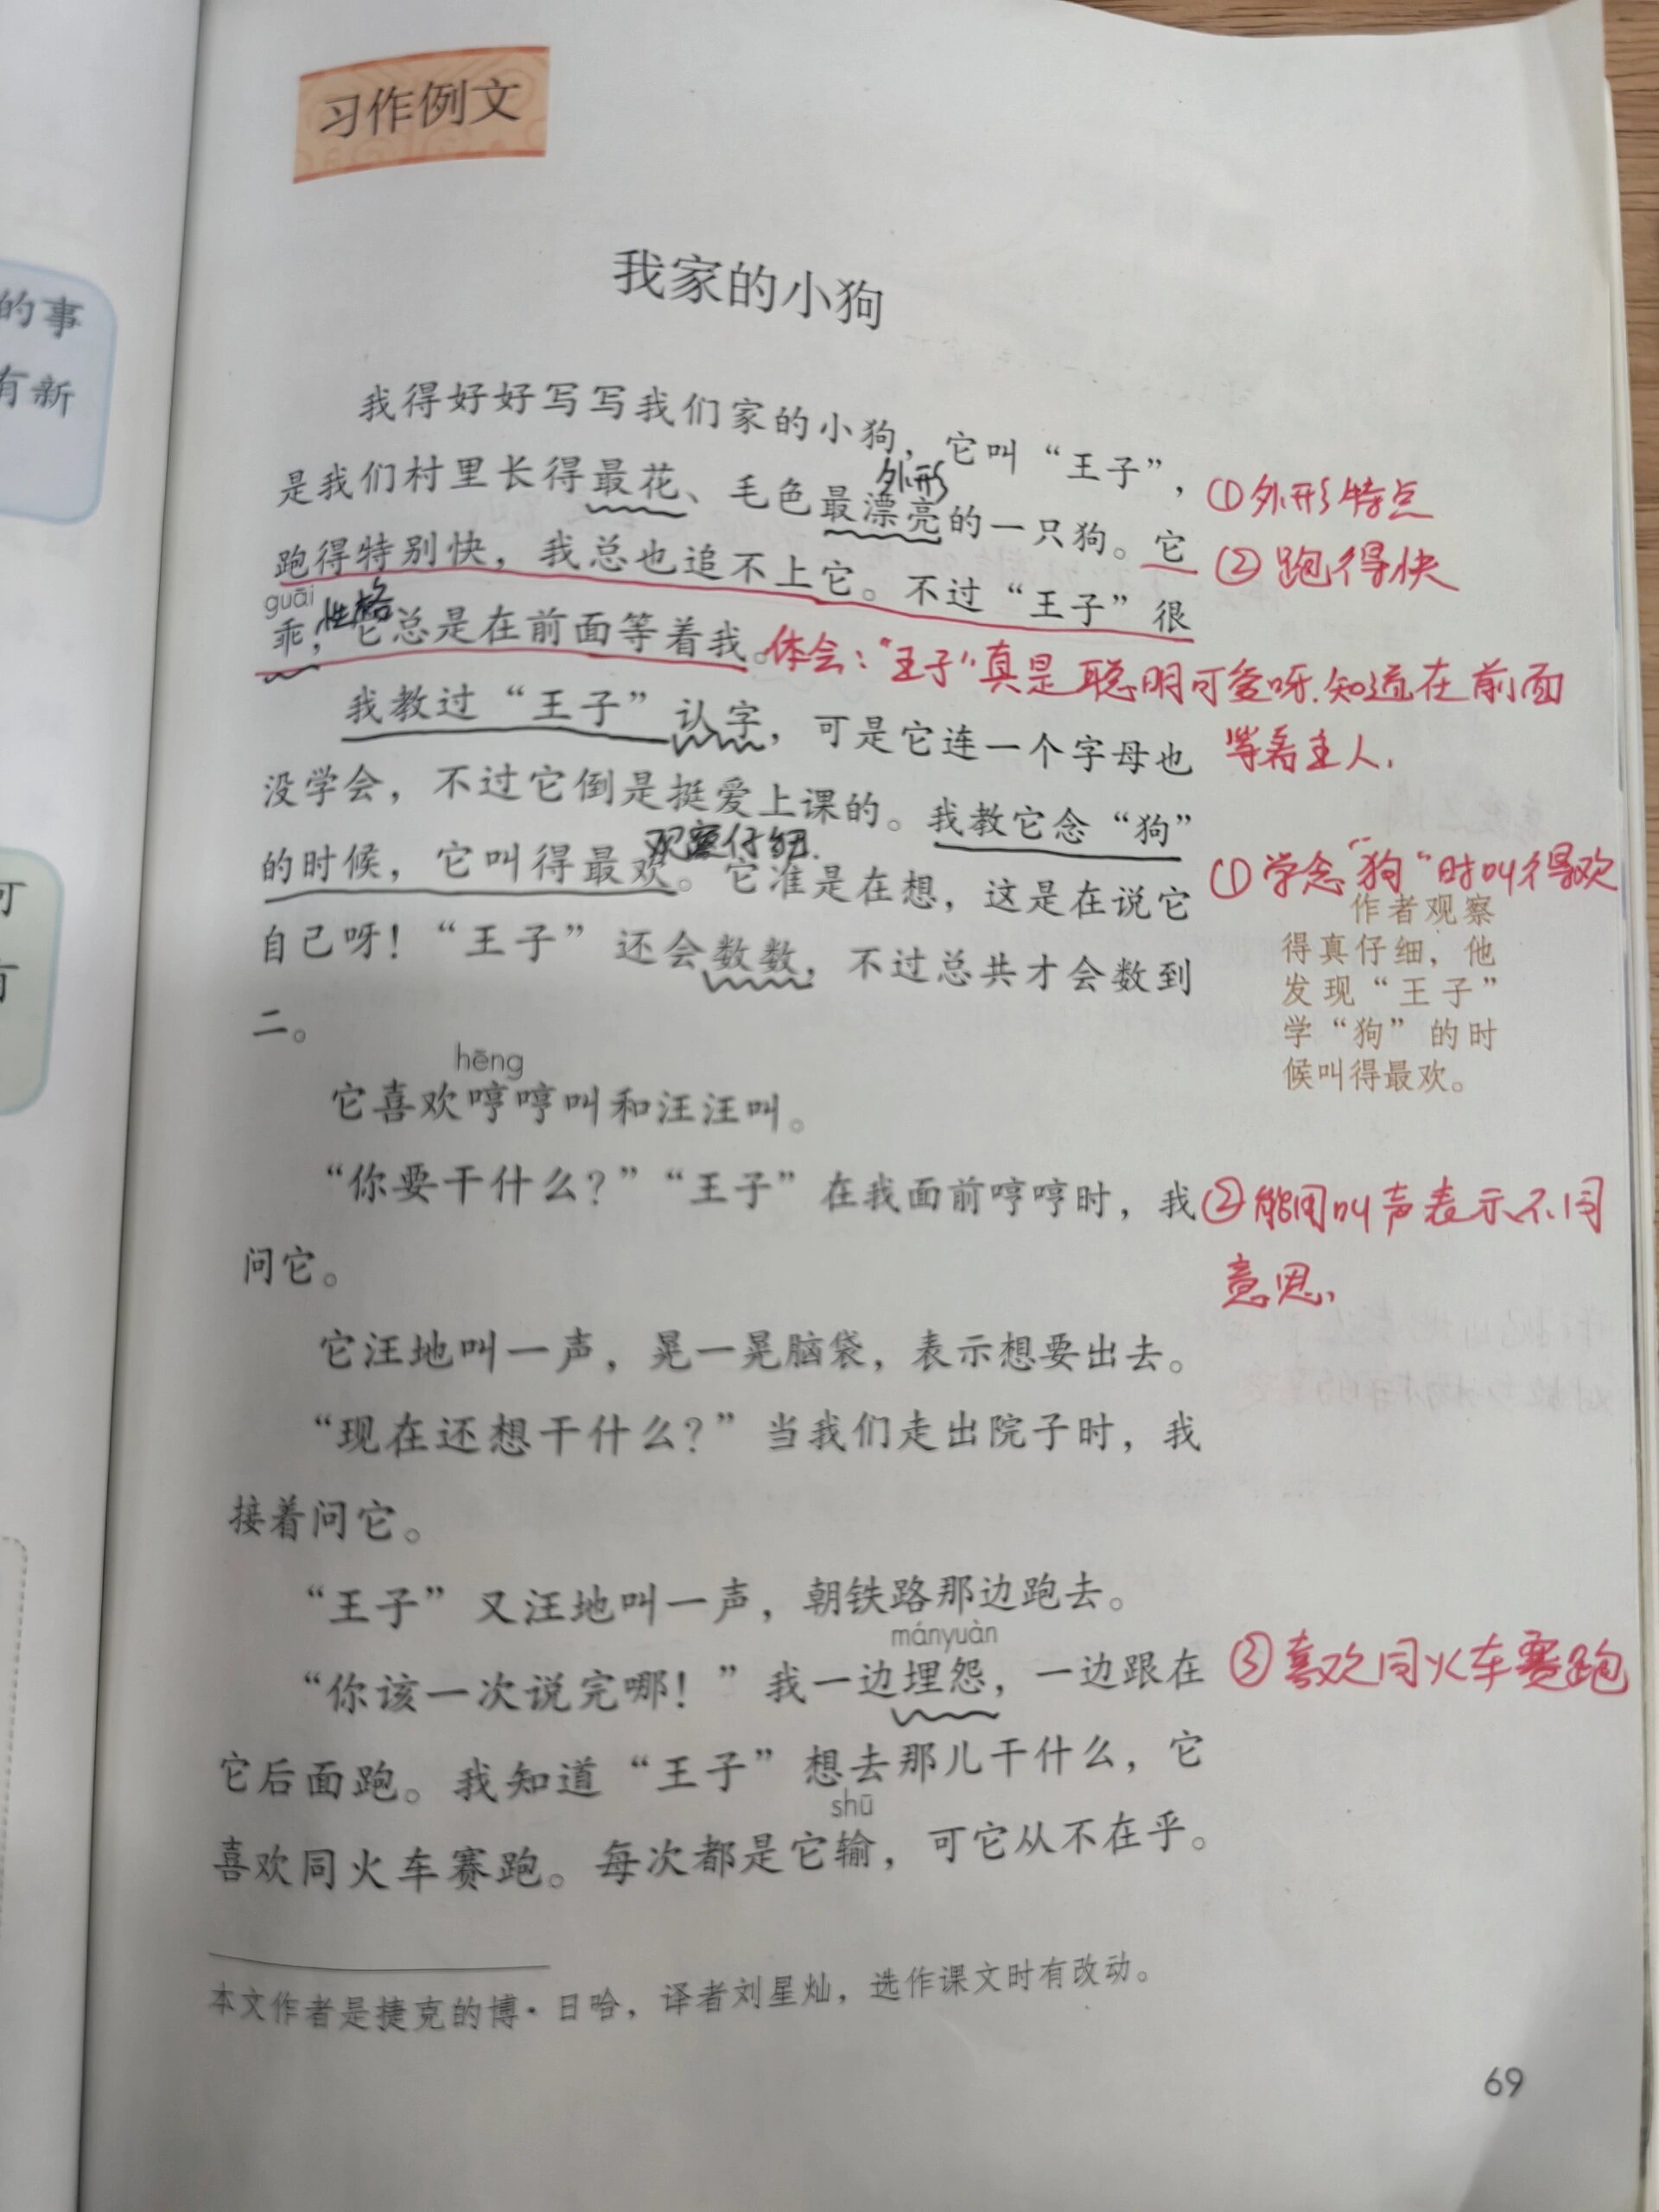 习作例文
的事
有新
我家的小狗
我得好好写写我们家的小狗，它叫“王子”，
外形
是我们村里长得最花、毛色最漂亮的一只狗。它
①外形特点
跑得特别快，我总也追不上它。不过“王子”很
②跑得快
guāi
性格
乖，它总是在前面等着我。
体会：“王子”真是聪明可爱呀.知道在前面
等着主人.
我教过“王子”认字，可是它连一个字母也
没学会，不过它倒是挺爱上课的。我教它念“狗”
观察仔细.
的时候，它叫得最欢。它准是在想，这是在说它
①学念“狗”时叫得欢
作者观察
得真仔细，他
发现“王子”
学“狗”的时
候叫得最欢。
自己呀！“王子”还会数数，不过总共才会数到
二。
hēng
它喜欢哼哼叫和汪汪叫。
“你要干什么？”“王子”在我面前哼哼时，我
问它。
②能用叫声表示不同
意思、
它汪地叫一声，晃一晃脑袋，表示想要出去。
“现在还想干什么？”当我们走出院子时，我
接着问它。
“王子”又汪地叫一声，朝铁路那边跑去。
mányuàn
“你该一次说完哪！”我一边埋怨，一边跟在
③喜欢同火车赛跑
它后面跑。我知道“王子”想去那儿干什么，它
shū
喜欢同火车赛跑。每次都是它输，可它从不在乎。
本文作者是捷克的博·日哈，译者刘星灿，选作课文时有改动。
69